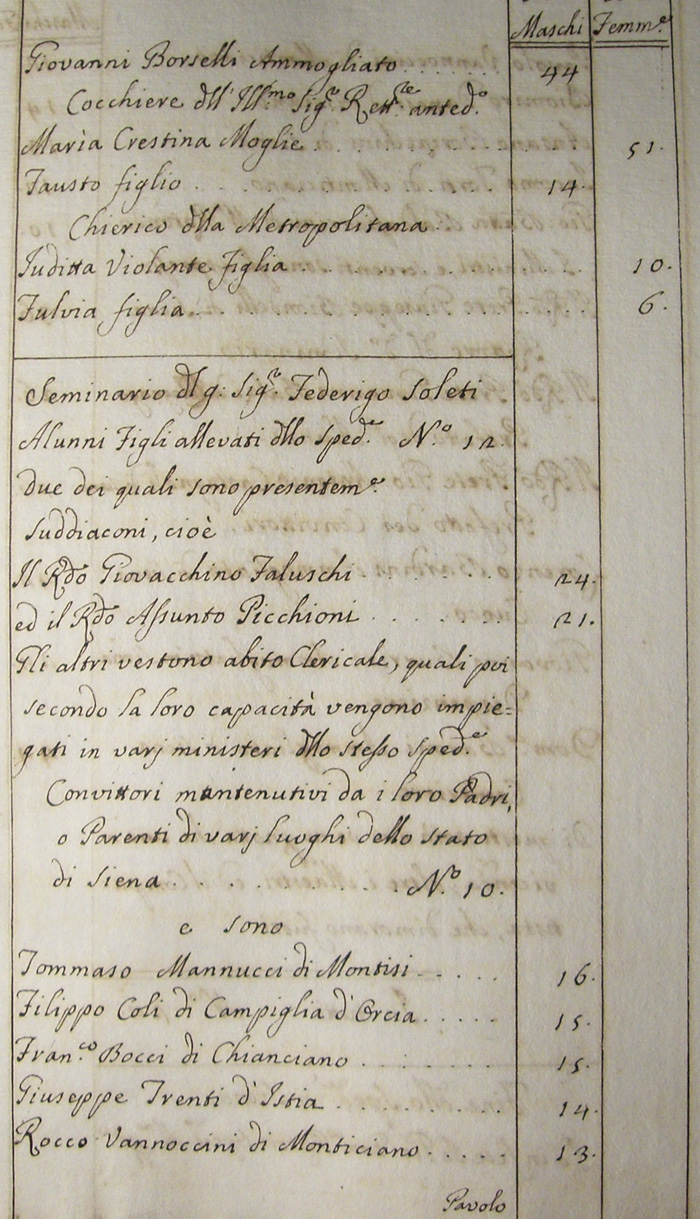 Maschi Femm.e
Giovanni Borselli Ammogliato . . . . . . 44
Cocchiere dll'Ill.mo Sig.r Rett.re anted.o
Maria Crestina Moglie . . . . . . . 51.
Fausto figlio . . . . . . . . 14.
Chierico dlla Metropolitana
Juditta Violante Figlia . . . . . . . 10.
Fulvia figlia . . . . . . . . 6.
Seminario dl g: Sig.r Federigo Soleti
Alunni Figli allevati dllo sped.e N.o 12.
due dei quali sono presentem.e
suddiaconi, cioè
Il Rdo Giovacchino Faluschi . . . . . . 24.
ed il Rdo Assunto Picchioni . . . . . . 21.
Gli altri vestono abito Clericale, quali poi
secondo la loro capacità vengono impie=
gati in varj ministeri dllo stesso sped.e
Convittori mantenutivi da i loro Padri,
o Parenti di varj luoghi dello stato
di Siena . . . . . . . . N.o 10.
e sono
Tommaso Mannucci di Montisi . . . . . 16.
Filippo Coli di Campiglia d'Orcia . . . . . 15.
Fran.co Bocci di Chianciano . . . . . . 15.
Giuseppe Trenti d'Istia . . . . . . . 14.
Rocco Vannoccini di Monticiano . . . . . 13.
Pavolo